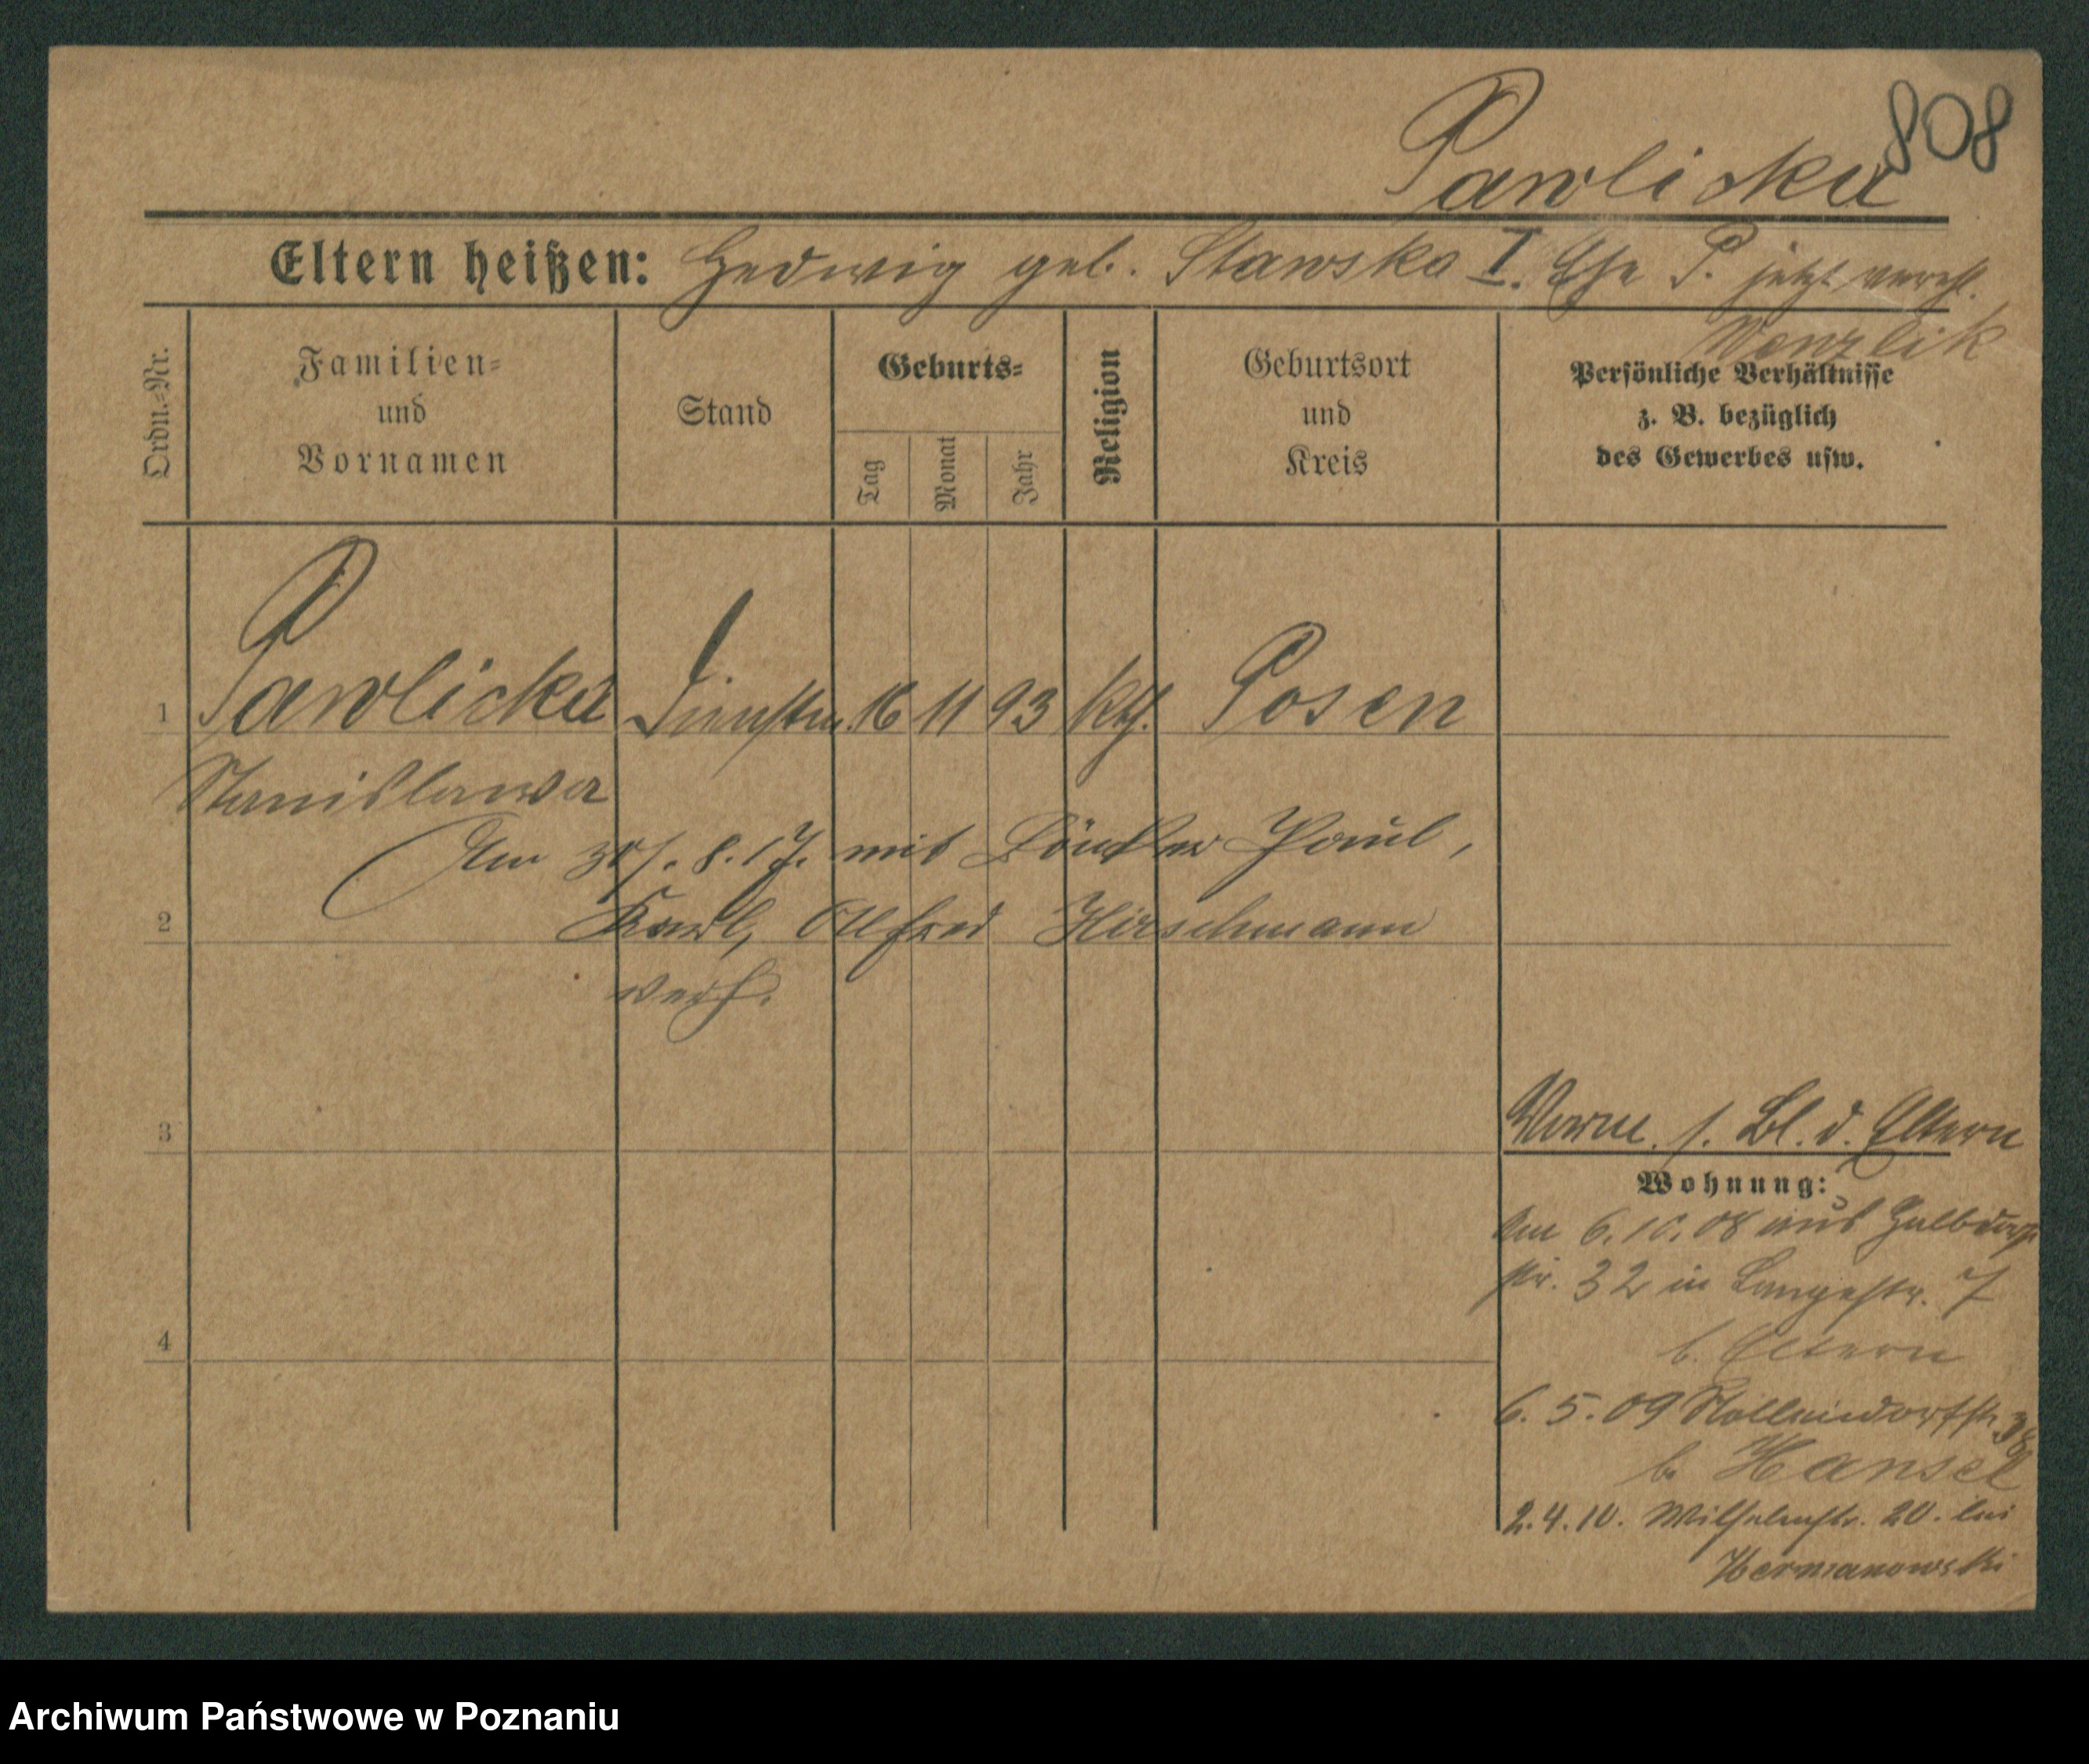 808
Pawlicka
Eltern heißen: Hedwig geb. Stawska I. Ehe P. jetzt vereh.
Wenzlik
Ordn.-Nr.
Familien-
und
Vornamen
Stand
Geburts-
Tag
Monat
Jahr
Religion
Geburtsort
und
Kreis
Persönliche Verhältnisse
z. B. bezüglich
des Gewerbes usw.
1 Pawlicka Dienstm. 16 11 93 kth. Posen
Stanislawa
Am 30/. 8. 17. mit Paul,
2 Karl, Alfred Hirschmann
verh.
3
Verm. s. Bl. d. Eltern
Wohnung:
Am 6.10.08 aus
str. 32 in Langestr. 7
4
b. Eltern
6. 5. 09 Nollendorfstr. 38
b. Hansel
2.4.10. Wilhelmstr. 20. bei
Hermanowski
Archiwum Państwowe w Poznaniu